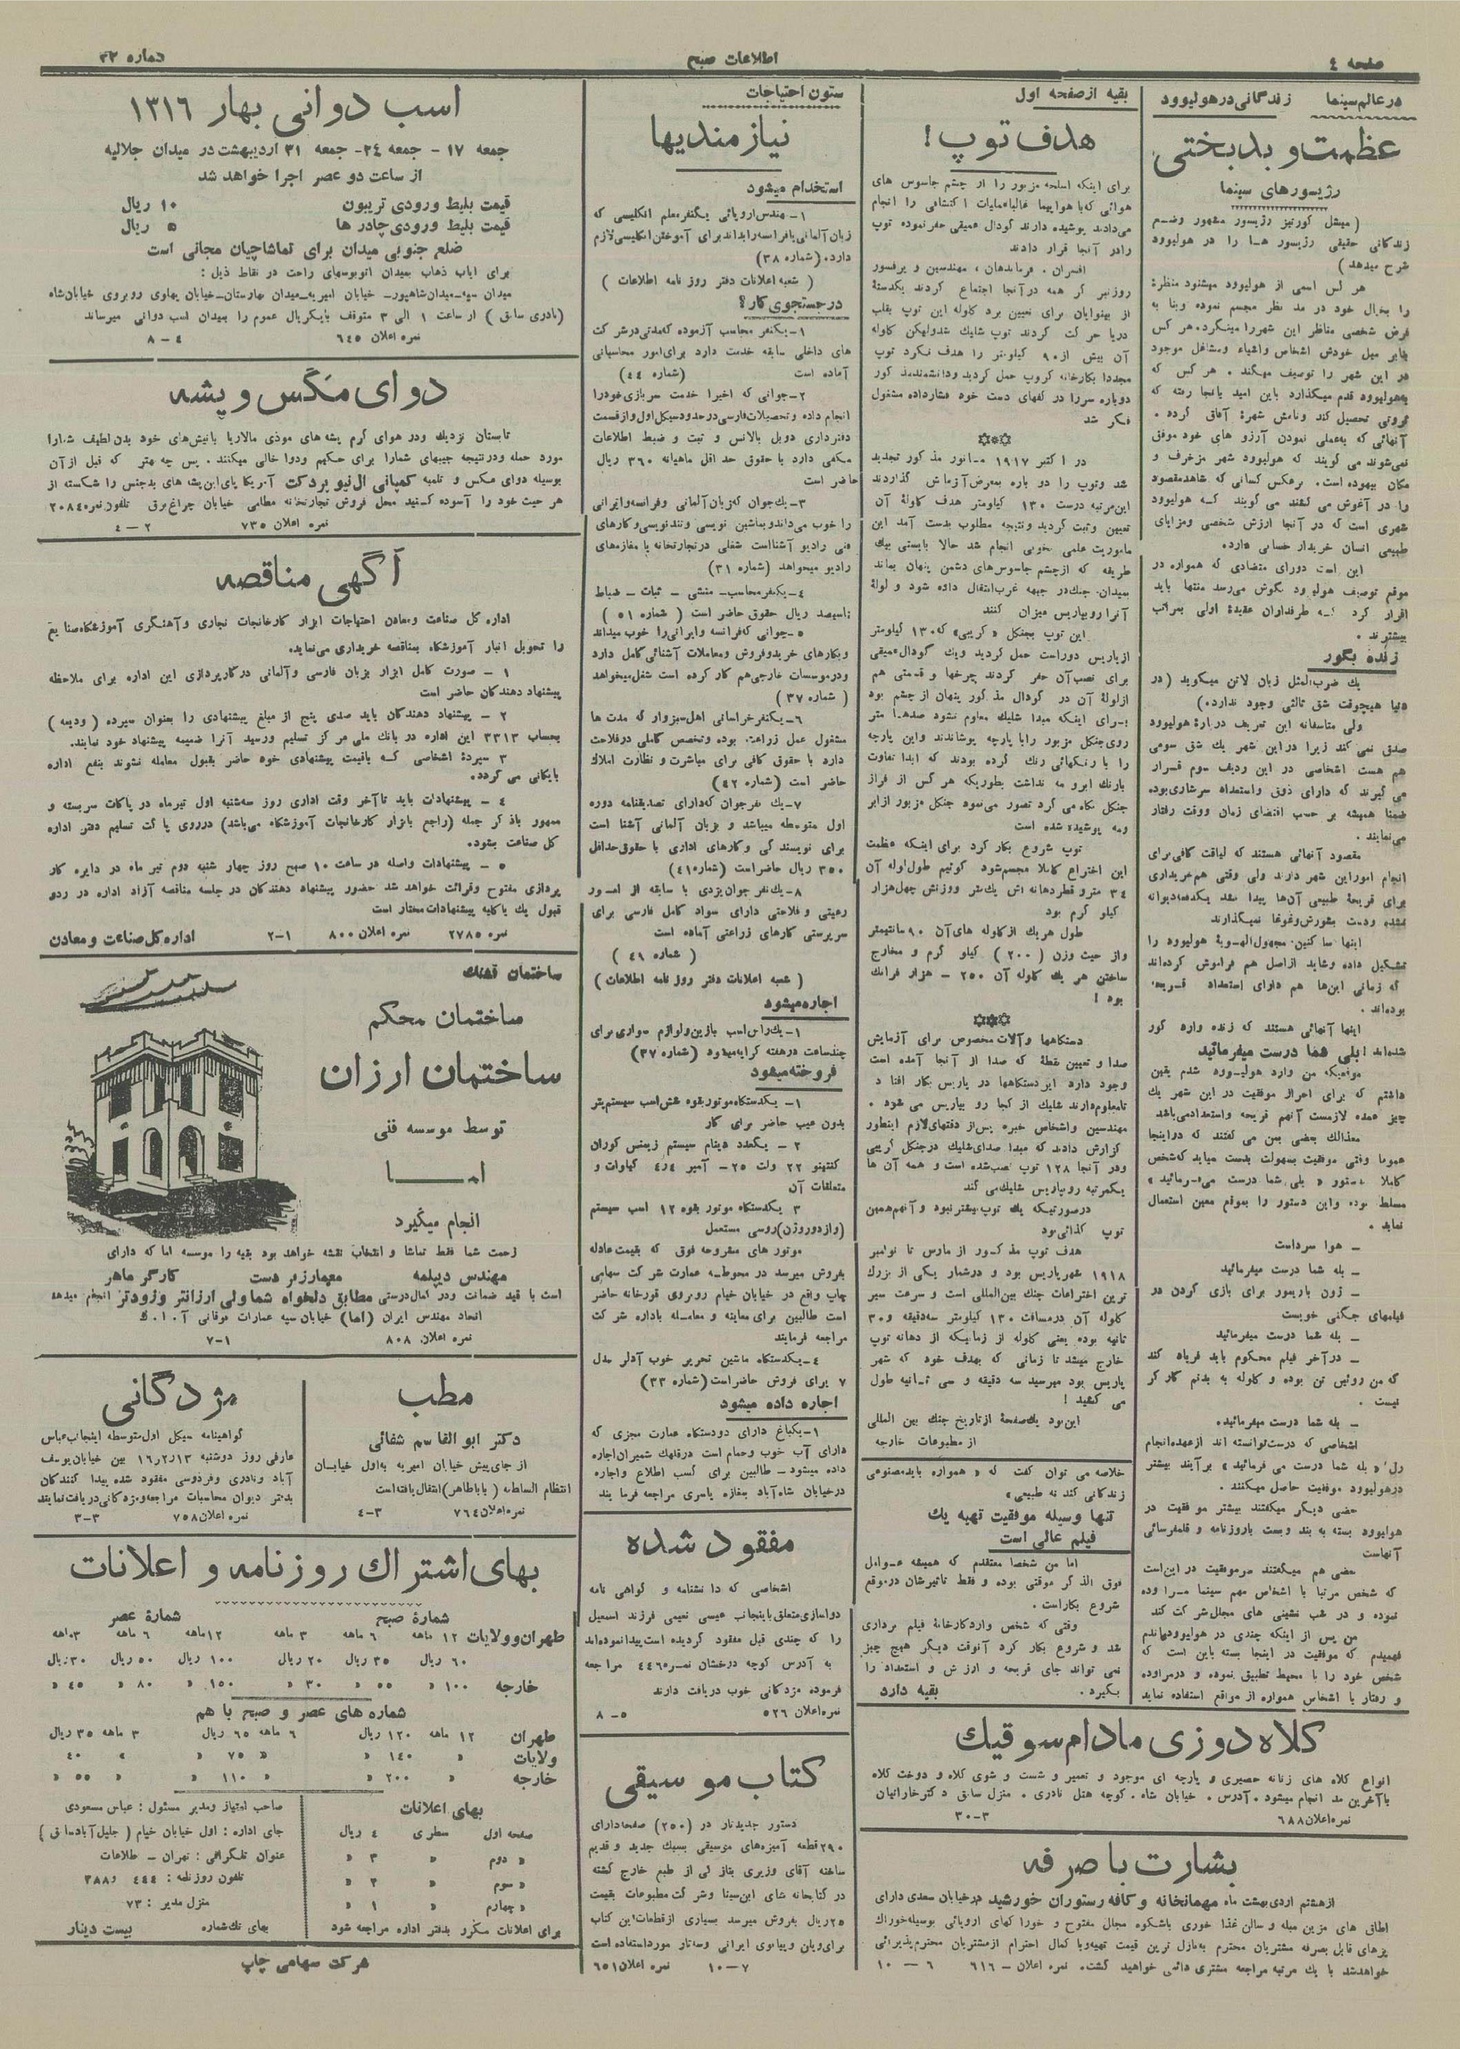 صفحه ٤
اطلاعات صبح
شماره ۳۳
در عالم سینما
زندگانی در هولیوود
عظمت و بدبختی
رژیسورهای سینما
(میشل کورتیز رژیسور مشهور وضع
زندگانی حقیقی رژیسور ها را در هولیوود
شرح میدهد)
هر کس اسمی از هولیوود میشنود منظرۀ
را بخیال خود در مد نظر مجسم نموده وبنا به
فرض شخصی مناظر این شهر را مینگرد. هر کس
بنابر میل خودش اشخاص واشیاء ومشاغل موجود
در این شهر را توصیف میکند. هر کس که
به هولیوود قدم میگذارد باین امید پا بجا رفته که
ثروتی تحصیل کند ونامش شهرۀ آفاق گردد.
آنهائی که به عملی نمودن آرزو های خود موفق
نمی‌شوند می گویند که هولیوود شهر مزخرف و
مکان بیهوده است. برعکس کسانی که شاهد مقصود
را در آغوش می کشند می گویند که هولیوود
شهری است که در آنجا ارزش شخصی ومزایای
طبیعی انسان خریدار حسابی دارد.
این است دورای متضادی که همواره در
موقع توصیف هولیوود بگوش می‌رسد منتها باید
اقرار کرد که طرفداران عقیدۀ اولی بمراتب
بیشترند.
زنده بگور
یك ضرب‌المثل زبان لاتن میگوید (در
دنیا هیچوقت شق ثالثی وجود ندارد)
ولی متاسفانه این تعریف دربارۀ هولیوود
صدق نمی کند زیرا در این شهر یك شق سومی
هم هست اشخاصی در این ردیف سوم قرار
می گیرند که دارای ذوق واستعداد سرشاری بوده
ضمنا همیشه بر حسب اقتضای زمان ووقت رفتار
می‌نمایند.
مقصود آنهائی هستند که لیاقت کافی برای
انجام امور این شهر دارند ولی وقتی هم خریداری
برای قریحۀ طبیعی آن‌ها پیدا نشد یکدفعه دیوانه
نشده ودست بشورش وغوغا نمیگذارند
اینها ساکنین مجهول‌الهویۀ هولیوود را
تشکیل داده وشاید از اصل هم فراموش کرده‌اند
که زمانی این‌ها هم دارای استعداد قریحه
بوده‌اند.
اینها آنهائی هستند که زنده وارد گور
شده‌اند! بلی شما درست میفرمائید
موقعیکه من وارد هولیوود شدم یقین
داشتم که برای احراز موفقیت در این شهر یك
چیز عمده لازمست آنهم قریحه واستعداد می‌باشد
معذالك بعضی بمن می گفتند که دراینجا
عموما وقتی موفقیت بسهولت بدست میآید که شخص
کاملا بدستور « بلی شما درست می‌فرمائید »
مسلط بوده واین دستور را بموقع معین استعمال
نماید.
ـ هوا سرداست
ـ بله شما درست میفرمائید
ـ ژون باریمور برای بازی کردن در
فیلمهای جنگی خوبست
ـ بله شما درست میفرمائید
ـ در آخر فیلم محکوم باید فریاد کند
که من روئین تن بوده و گلوله به بدنم کار گر
نیست.
ـ بله شما درست میفرمائید.
اشخاصی که درست توانسته اند از عهده انجام
رل « بله شما درست می فرمائید » برآیند بیشتر
در هولیوود موفقیت حاصل میکنند.
بعضی دیگر میگفتند بیشتر موفقیت در
هولیوود بسته به بند وبست با روزنامه و قلمفرسائی
آنهاست
بعضی هم میگفتند سر موفقیت در این‌است
که شخص مرتبا با اشخاص مهم سینما مراوده
نموده و در شب نشینی های مجلل شرکت کند
من پس از اینکه چندی در هولیوود ماندم
فهمیدم که موفقیت در اینجا بسته باین است که
شخص خود را با محیط تطبیق نموده و در مراوده
و رفتار با اشخاص همواره از مواقع استفاده نماید
بقیه از صفحه اول
هدف توپ!
برای اینکه اسلحه مزبور را از چشم جاسوس های
هوائی که با هواپیما غالبا عملیات اکتشافی را انجام
می‌دادند پوشیده دارند گودال عمیقی حفر نموده توپ
را در آنجا قرار دادند
افسران، فرماندهان، مهندسین و پرفسور
روزنبر گر همه در آنجا اجتماع کردند یکدستۀ
از بینوایان برای تعیین برد گلوله این توپ بقلب
دریا حر کت کردند توپ شلیك شد ولیکن گلوله
آن بیش از ۹۰ کیلومتر را هدف نکرد توپ
مجددا بکارخانه کروپ حمل گردید ودانشمند مذ کور
دوباره سر را در کفهای دست خود فشار داده مشغول
فکر شد
در ا کتبر ۱۹۱۷ مانور مذ کور تجدید
شد وتوپ را دو باره بمعرض آزمایش گذاردند
این مرتبه درست ۱۳۰ کیلومتر هدف گلولۀ آن
تعیین وثبت گردید ونتیجه مطلوب بدست آمد این
ماموریت علمی بخوبی انجام شد حالا بایستی بیك
طریقه که از چشم جاسوس‌های دشمن پنهان بماند
بمیدان جنك در جبهه غرب انتقال داده شود و لولۀ
آنرا رو بپاریس میزان کنند
این توپ بجنگل « کریپی » که ۱۳۰ کیلومتر
از پاریس دوراست حمل گردید ویك گودال عمیقی
برای نصب آن حفر کردند چرخها و قسمتی هم
از لولۀ آن در گودال مذ کور پنهان از چشم بود
برای اینکه مبدا شلیك معلوم نشود صدها متر
روی جنگل مزبور را با پارچه پوشاندند واین پارچه
را با رنگهائی رنك کرده بودند که ابدا تفاوت
با رنك ابر و مه نداشت بطوریکه هر کس از فراز
جنگل نگاه می کرد تصور می‌نمود جنگل مزبور از ابر
ومه پوشیده شده است
توپ شروع بکار کرد برای اینکه عظمت
این اختراع کاملا مجسم شود گوئیم طول لوله آن
۳٤ متر و قطر دهانه اش یك متر ووزنش چهل هزار
کیلو گرم بود
طول هر یك از گلوله های آن ۹۰ سانتیمتر
و از حیث وزن (۲۰۰) کیلو گرم و مخارج
ساختن هر یك گلوله آن ۲۵۰ ـ هزار فرانك
بود!
دستگاهها و آلات مخصوص برای آزمایش
صدا و تعیین نقطۀ که صدا از آنجا آمده است
وجود دارد این دستگاهها در پاریس بکار افتاد
تا معلوم دارند شلیك از کجا رو بپاریس می شود.
مهندسین واشخاص خبره پس از دقتهای لازم اینطور
گزارش دادند که مبدا صدای شلیك در جنگل کریپی
ودر آنجا ۱۲۸ توپ نصب شده است و همه آن ها
یکمرتبه رو بپاریس شلیك می کند
در صورتیکه یك توپ بیشتر نبود و آنهم همین
توپ کذائی بود
هدف توپ مذ کور از مارس تا نوامبر
۱۹۱۸ شهر پاریس بود و درشمار یکی از بزرك
ترین اختراعات جنك بین‌المللی است و سرعت سیر
گلوله آن درمسافت ۱۳۰ کیلومتر سه دقیقه و ۳۰
ثانیه بوده یعنی گلوله از زمانیکه از دهانه توپ
خارج میشد تا زمانی که بهدف خود که شهر
پاریس بود میرسید سه دقیقه و سی ثانیه طول
می کشید!
این بود یك صفحۀ از تاریخ جنك بین المللی
از مطبوعات خارجه
خلاصه می توان گفت که « همواره باید مصنوعی
زندگانی کند نه طبیعی »
تنها وسیله موفقیت تهیه یك
فیلم عالی است
اما من شخصا معتقدم که همیشه عوامل
فوق الذ کر موقتی بوده و فقط تاثیرشان در موقع
شروع بکار است.
وقتی که شخص وارد کارخانۀ فیلم برداری
شد و شروع بکار کرد آنوقت دیگر هیچ چیز
نمی تواند جای قریحه و ارزش و استعداد را
بگیرد.
بقیه دارد
کلاه دوزی مادام سوقیك
انواع کلاه های زنانه حصیری و پارچه ای موجود و تعمیر و شست و شوی کلاه و دوخت کلاه
با آخرین مد انجام میشود. آدرس. خیابان شاه. کوچه هتل نادری. منزل سابق دکتر خاراتیان
نمره اعلان ۶۸۸
۳ـ۳۰
بشارت با صرفه
از هشتم اردی بهشت ماه مهمانخانه و کافه رستوران خورشید در خیابان سعدی دارای
اطاق های مزین مبله و سالن غذا خوری باشکوه سجال مفتوح و خوراکهای اروپائی بوسیله خوراك
پزهای قابل بصرفه مشتریان محترم به نازل ترین قیمت تهیه و با کمال احترام از مشتریان محترم پذیرائی
خواهد شد با یك مرتبه مراجعه مشتری دائمی خواهید گشت. نمره اعلان ـ ٦١٦
٦ ـ ١٠
ستون احتیاجات
نیازمندیها
استخدام میشود
۱ـ مهندس اروپائی یکنفر معلم انگلیسی که
زبان آلمانی یا فرانسه را بداند برای آموختن انگلیسی لازم
دارد. (شماره ۳۸)
( شعبه اعلانات دفتر روز نامه اطلاعات )
در جستجوی کار؟
۱ـ یکنفر محاسب آزموده که مدتی در شر کت
های داخلی سابقه خدمت دارد برای امور محاسباتی
آماده است (شماره ٤٤)
۲ـ جوانی که اخیرا خدمت سربازی خود را
انجام داده و تحصیلات فارسی در حدود سیکل اول و از قسمت
دفترداری دوبل بالانس و ثبت و ضبط اطلاعات
مکفی دارد با حقوق حد اقل ماهیانه ۳٦۰ ریال
حاضر است
۳ـ یك جوان که زبان آلمانی وفرانسه وایرانی
را خوب می‌داند وبماشین نویسی و تند نویسی و کارهای
فنی رادیو آشنااست شغلی در تجارتخانه یا مغازه‌های
رادیو میخواهد (شماره ۳۱)
٤ـ یکنفر محاسب ـ منشی ـ ثبات ـ ضباط
با سیصد ریال حقوق حاضر است (شماره ۵۱)
۵ـ جوانی که فرانسه وایرانی را خوب میداند
و بکارهای خرید وفروش ومعاملات آشنائی کامل دارد
ودر موسسات خارجی هم کار کرده است شغل میخواهد
(شماره ۳۷)
٦ـ یکنفر خراسانی اهل سبزوار که مدت ها
مشغول عمل زراعت بوده وتخصص کاملی در فلاحت
دارد با حقوق کافی برای مباشرت و نظارت املاك
حاضر است (شماره ٤۲)
۷ـ یك نفر جوان که دارای تصدیقنامه دوره
اول متوسطه میباشد و بزبان آلمانی آشنا است
برای نویسند گی و کارهای اداری با حقوق حداقل
۳۵۰ ریال حاضر است (شماره ٤۱)
۸ـ یك نفر جوان یزدی با سابقه از امور
رعیتی و فلاحتی دارای سواد کامل فارسی برای
سرپرستی کارهای زراعتی آماده است
(شماره ٤۹)
( شعبه اعلانات دفتر روز نامه اطلاعات )
اجاره میشود
۱ـ یك راس اسب با زین و لوازم سواری برای
چند ساعت در هفته کرایه میشود (شماره ۳۷)
فروخته میشود
۱ـ یکدستگاه موتور بقوه شش اسب سیستم پتر
بدون عیب حاضر برای کار
۲ ـ یکعدد دینام سیستم زیمنس کوران
کنتینو ۲۲ ولت ۲۵ـ آمپر ٤ر٤ کیلوات و
متعلقات آن
۳ یکدستگاه موتور بقوه ۱۲ اسب سیستم
(واز دوروژن) روسی مستعمل
موتور های مشروحه فوق که بقیمت عادله
بفروش میرسد در محوطه عمارت شر کت سهامی
چاپ واقع در خیابان خیام روبروی قورخانه حاضر
است طالبین برای معاینه و معامله باداره شر کت
مراجعه فرمایند
٤ـ یکدستگاه ماشین تحریر خوب آدلر مدل
۷ برای فروش حاضراست (شماره ۳۳)
اجاره داده میشود
۱ـ یکباغ دارای دودستگاه عمارت مجزی که
دارای آب خوب وحمام است در قلهك شمیران اجاره
داده میشود ـ طالبین برای کسب اطلاع و اجاره
در خیابان شاه آباد بمغازه یاسری مراجعه فرما یند
مفقود شده
اشخاصی که دانشنامه و گواهی نامه
دواسازی متعلق باینجانب عیسی نعیمی فرزند اسمعیل
را که چندی قبل مفقود گردیده است پیدا نموده‌اند
به آدرس کوچه درخشان نمره ٤٤٦۵ مراجعه
فرموده مژدگانی خوب دریافت دارند
نمره اعلان ۵۲٦
۵ـ ۸
کتاب موسیقی
دستور جدید تار در (۲۵۰) صفحه دارای
۲۹۰ قطعه آمیزه‌های موسیقی بسبك جدید و قدیم
ساخته آقای وزیری بتاز گی از طبع خارج گشته
در کتابخانه های ابن‌سینا وشر کت مطبوعات بقیمت
۲۵ ریال بفروش میرسد بسیاری از قطعات این کتاب
برای ویلن وپیانوی ایرانی وسه‌تار مورد استفاده است
۷ـ۱۰
نمره اعلان ٦۵۱
اسب دوانی بهار ۱۳۱٦
جمعه ۱۷ ـ جمعه ۲٤ـ جمعه ۳۱ اردیبهشت در میدان جلالیه
از ساعت دو عصر اجرا خواهد شد
قیمت بلیط ورودی تریبون ۱۰ ریال
قیمت بلیط ورودی چادر ها ۵ ریال
ضلع جنوبی میدان برای تماشاچیان مجانی است
برای ایاب ذهاب بمیدان اتوبوسهای راحت در نقاط ذیل:
میدان سپه ـ میدان شاهپور ـ خیابان امیریه ـ میدان بهارستان ـ خیابان پهلوی روبروی خیابان شاه
(نادری سابق) از ساعت ۱ الی ۳ متوقف با یکریال عموم را بمیدان اسب دوانی میرساند
نمره اعلان ٦٤۵
٤ ـ ۸
دوای مگس و پشه
تابستان نزدیك ودر هوای گرم پشه های موذی مالاریا بانیش‌های خود بدن لطیف شمارا
مورد حمله ودر نتیجه جیبهای شمارا برای حکیم ودوا خالی میکنند. پس چه بهتر که قبل از آن
بوسیله دوای مگس و تلمبه کمپانی ال نیو بردکت آمریکا پای این پشه های بدجنس را شکسته از
هر حیث خود را آسوده کنید محل فروش تجارتخانه عظامی خیابان چراغ برق تلفون نمره ۲۰۸٤
نمره اعلان ۷۳۵
۲ ـ ٤
آگهی مناقصه
اداره کل صناعت ومعادن احتیاجات ابزار کارخانجات نجاری و آهنگری آموزشگاه صنایع
را تحویل انبار آموزشگاه بمناقصه خریداری می‌نماید.
۱ ـ صورت کامل ابزار بزبان فارسی و آلمانی در کارپردازی این اداره برای ملاحظه
پیشنهاد دهندگان حاضر است
۲ ـ پیشنهاد دهندگان باید صدی پنج از مبلغ پیشنهادی را بعنوان سپرده (ودیعه)
بحساب ۳۳۱۳ این اداره در بانك ملی مر کز تسلیم ورسید آنرا ضمیمه پیشنهاد خود نمایند.
۳ سپردۀ اشخاصی که باقیمت پیشنهادی خود حاضر بقبول معامله نشوند بنفع اداره
بایگانی می گردد.
٤ ـ پیشنهادات باید تا آخر وقت اداری روز سه‌شنبه اول تیرماه در پاکات سربسته و
ممهور باذ کر جمله (راجع بابزار کارخانجات آموزشگاه می‌باشد) در روی پا کت تسلیم دفتر اداره
کل صناعت بشود.
۵ ـ پیشنهادات واصله در ساعت ۱۰ صبح روز چهار شنبه دوم تیر ماه در دایره کار
پردازی مفتوح وقرائت خواهد شد حضور پیشنهاد دهندگان در جلسه مناقصه آزاد اداره در ردو
قبول یك یا کلیه پیشنهادات مختار است
نمره ۲۷۸۵ نمره اعلان ۸۰۰ ۱ـ۲ اداره کل صناعت و معادن
ساختمان قشنك
ساختمان محکم
ساختمان ارزان
توسط موسسه فنی
اما
انجام میگیرد
زحمت شما فقط تماشا و انتخاب نقشه خواهد بود بقیه را موسسه اما که دارای
مهندس دیپلمه معمار زبر دست کارگر ماهر
است با قید ضمانت ودر کمال درستی مطابق دلخواه شما ولی ارزانتر و زودتر انجام میدهد
اتحاد مهندس ایران (اما) خیابان سپه عمارات موقانی
نمره اعلان ۸۰۸
۱ـ۷
مطب
دکتر ابوالقاسم شفائی
از جای پیش خیابان امیریه به اول خیابان
انتظام السلطنه (باباطاهر) انتقال یافته است
نمره اعلان ۷٦٤
۳ـ٤
مژدگانی
گواهینامه سیکل اول متوسطه اینجانب عباس
عارفی روز دوشنبه ۱۳ر۲ر۱٦ بین خیابان یوسف
آباد ونادری وفردوسی مفقود شده پیدا کنندگان
بدفتر دیوان محاسبات مراجعه ومژدگانی دریافت نمایند
نمره اعلان ۷۵۸
۳ـ۳
بهای اشتراك روزنامه و اعلانات
شمارۀ صبح
شمارۀ عصر
طهران وولایات ۱۲ ماهه ٦ ماهه ۳ ماهه ۱۲ ماهه ٦ ماهه ۳ ماهه
٦۰ ریال ۳۵ ریال ۲۰ ریال ۱۰۰ ریال ۵۰ ریال ۳۰ ریال
خارجه ۱۰۰ « ۵۵ « ۳۰ « ۱۵۰ « ۸۰ « ٤۵ «
شماره های عصر و صبح با هم
طهران ۱۲ ماهه ۱۲۰ ریال ٦ ماهه ٦۵ ریال ۳ ماهه ۳۵ ریال
ولایات « ۱٤۰ « « ۷۵ « « ٤۰ «
خارجه « ۲۰۰ « « ۱۱۰ « « ۵۵ «
بهای اعلانات
صفحه اول سطری ٤ ریال
« دوم « ۳ «
« سوم « ۲ «
« چهارم « ۱ «
برای اعلانات مکرر بدفتر اداره مراجعه شود
صاحب امتیاز ومدیر مسئول: عباس مسعودی
جای اداره: اول خیابان خیام (جلیل آباد سابق)
عنوان تلگرافی: تهران ـ اطلاعات
تلفون روزنامه: ٤٤٤ و ۳۸۸
منزل مدیر: ۷۳
بهای تك شماره بیست دینار
شرکت سهامی چاپ